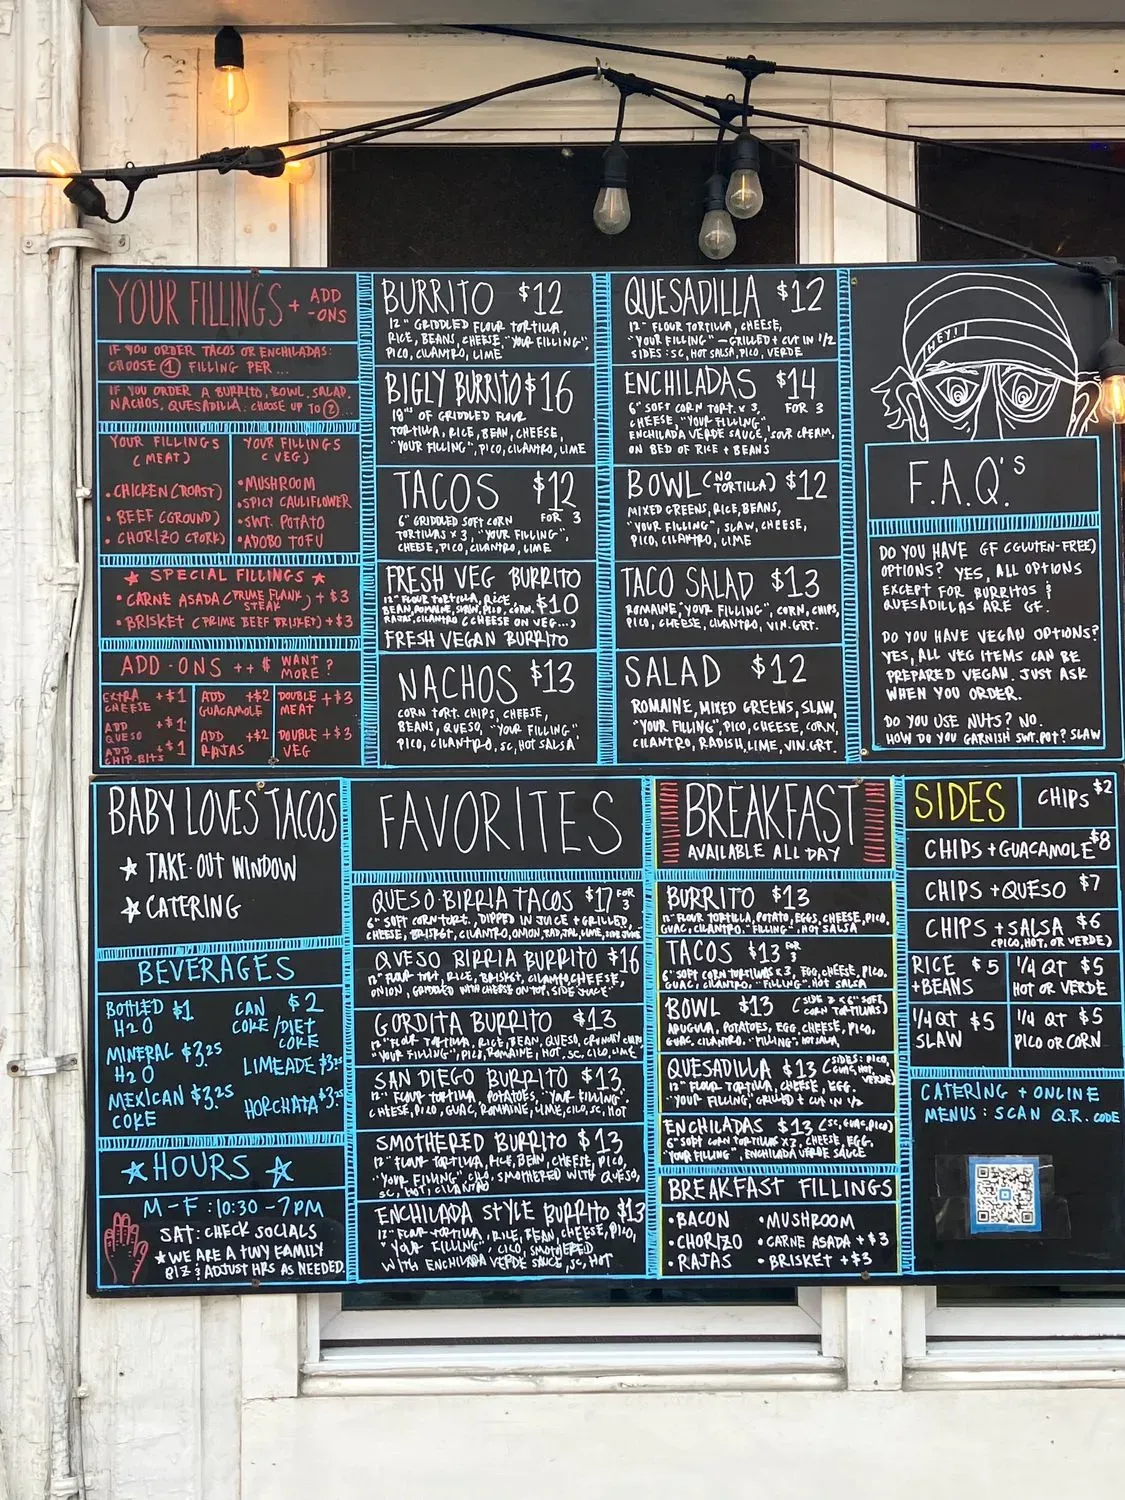 YOUR FILLINGS + ADD
-ONS
IF YOU ORDER TACOS OR ENCHILADAS:
CHOOSE 1 FILLING PER ...
IF YOU ORDER A BURRITO, BOWL, SALAD,
NACHOS, QUESADILLA. CHOOSE UP TO 2 ...
YOUR FILLINGS
(MEAT)
• CHICKEN (ROAST)
• BEEF (GROUND)
• CHORIZO (PORK)
YOUR FILLINGS
(VEG)
• MUSHROOM
• SPICY CAULIFLOWER
• SWT. POTATO
• ADOBO TOFU
★ SPECIAL FILLINGS ★
• CARNE ASADA (PRIME FLANK STEAK) + $3
• BRISKET (PRIME BEEF BRISKET) + $3
ADD-ONS ++$ WANT
MORE?
EXTRA +$1
CHEESE
ADD +$1
QUESO
ADD +$1
CHIP-BITS
ADD +$2
GUACAMOLE
ADD +$2
RAJAS
DOUBLE +$3
MEAT
DOUBLE +$3
VEG
BURRITO $12
12" GRIDDLED FLOUR TORTILLA,
RICE, BEANS, CHEESE, "YOUR FILLING",
PICO, CILANTRO, LIME
BIGLY BURRITO $16
OF GRIDDLED FLOUR
TORTILLA, RICE, BEAN, CHEESE,
"YOUR FILLING", PICO, CILANTRO, LIME
TACOS $12
FOR 3
6" GRIDDLED SOFT CORN
TORTILLAS x 3, "YOUR FILLING",
CHEESE, PICO, CILANTRO, LIME
FRESH VEG BURRITO
12" FLOUR TORTILLA, RICE, $10
BEAN, ROMAINE, SLAW, PICO, CORN,
RAJAS, CILANTRO (CHEESE ON VEG...)
FRESH VEGAN BURRITO
NACHOS $13
CORN TORT. CHIPS, CHEESE,
BEANS, QUESO, "YOUR FILLING"
PICO, CILANTRO, SC, HOT SALSA
QUESADILLA $12
12" FLOUR TORTILLA, CHEESE,
"YOUR FILLING" — GRILLED + CUT IN 1/2
SIDES: SC, HOT SALSA, PICO, VERDE
ENCHILADAS $14
FOR 3
6" SOFT CORN TORT. x 3,
CHEESE, "YOUR FILLING",
ENCHILADA VERDE SAUCE, SOUR CREAM,
ON BED OF RICE + BEANS
BOWL (NO TORTILLA) $12
MIXED GREENS, RICE, BEANS,
"YOUR FILLING", SLAW, CHEESE,
PICO, CILANTRO, LIME
TACO SALAD $13
ROMAINE, "YOUR FILLING", CORN, CHIPS,
PICO, CHEESE, CILANTRO, VIN. GRT.
SALAD $12
ROMAINE, MIXED GREENS, SLAW,
"YOUR FILLING", PICO, CHEESE, CORN,
CILANTRO, RADISH, LIME, VIN. GRT.
HEY!
F.A.Q.'S
DO YOU HAVE GF (GLUTEN-FREE)
OPTIONS? YES, ALL OPTIONS
EXCEPT FOR BURRITOS &
QUESADILLAS ARE GF.
DO YOU HAVE VEGAN OPTIONS?
YES, ALL VEG ITEMS CAN BE
PREPARED VEGAN. JUST ASK
WHEN YOU ORDER.
DO YOU USE NUTS? NO.
HOW DO YOU GARNISH SWT. POT? SLAW
BABY LOVES TACOS
★ TAKE-OUT WINDOW
★ CATERING
BEVERAGES
BOTTLED $1
H2O
MINERAL $3.25
H2O
MEXICAN $3.25
COKE
CAN $2
COKE/DIET
COKE
LIMEADE $3.25
HORCHATA $3.25
★ HOURS ★
M-F: 10:30 - 7PM
SAT: CHECK SOCIALS
★ WE ARE A TINY FAMILY
BIZ & ADJUST HRS AS NEEDED.
FAVORITES
QUESO BIRRIA TACOS $17 FOR 3
6" SOFT CORN TORT., DIPPED IN JUICE + GRILLED,
CHEESE, BRISKET, CILANTRO, ONION, RAD, LIME, SIDE JUICE
QUESO BIRRIA BURRITO $16
12" FLOUR TORT, RICE, BRISKET, CILANTRO, CHEESE,
ONION, GRIDDLED WITH CHEESE ON TOP, SIDE "JUICE"
GORDITA BURRITO $13
12" FLOUR TORTILLA, RICE, BEAN, QUESO, CRUNCHY CHIPS
"YOUR FILLING", PICO, ROMAINE, HOT, SC, CILO, LIME
SAN DIEGO BURRITO $13
12" FLOUR TORTILLA POTATOES, "YOUR FILLING"
CHEESE, PICO, GUAC, ROMAINE, LIME, CILO, SC, HOT
SMOTHERED BURRITO $13
12" FLOUR TORTILLA, RICE, BEAN, CHEESE, PICO,
"YOUR FILLING" CILO, SMOTHERED WITH QUESO,
SC, HOT, CILANTRO
ENCHILADA STYLE BURRITO $13
12" FLOUR TORTILLA, RICE, BEAN, CHEESE, PICO,
"YOUR FILLING", CILO, SMOTHERED
WITH ENCHILADA VERDE SAUCE, SC, HOT
BREAKFAST
AVAILABLE ALL DAY
BURRITO $13
12" FLOUR TORTILLA, POTATO, EGGS, CHEESE, PICO,
GUAC, CILANTRO, "FILLING", HOT SALSA
TACOS $13 FOR 3
6" SOFT CORN TORTILLAS x 3, EGG, CHEESE, PICO,
GUAC, CILANTRO, "FILLING", HOT SALSA
BOWL $13 (SIDE 2 x 6" SOFT
CORN TORTILLAS)
ARUGULA, POTATOES, EGG, CHEESE, PICO,
GUAC, CILANTRO, "FILLING", HOT SALSA
QUESADILLA $13 (SIDES: PICO,
GUAC, HOT, VERDE)
12" FLOUR TORTILLA, CHEESE, EGG,
"YOUR FILLING", GRILLED + CUT IN 1/2
ENCHILADAS $13 (SC, GUAC, PICO)
6" SOFT CORN TORTILLAS x 3, CHEESE, EGG,
"YOUR FILLING", ENCHILADA VERDE SAUCE
BREAKFAST FILLINGS
• BACON
• CHORIZO
• RAJAS
• MUSHROOM
• CARNE ASADA + $3
• BRISKET + $3
SIDES
CHIPS $2
CHIPS + GUACAMOLE $8
CHIPS + QUESO $7
CHIPS + SALSA $6
(PICO, HOT, OR VERDE)
RICE $5
+ BEANS
1/4 QT $5
HOT OR VERDE
1/4 QT $5
SLAW
1/4 QT $5
PICO OR CORN
CATERING + ONLINE
MENUS: SCAN Q.R. CODE